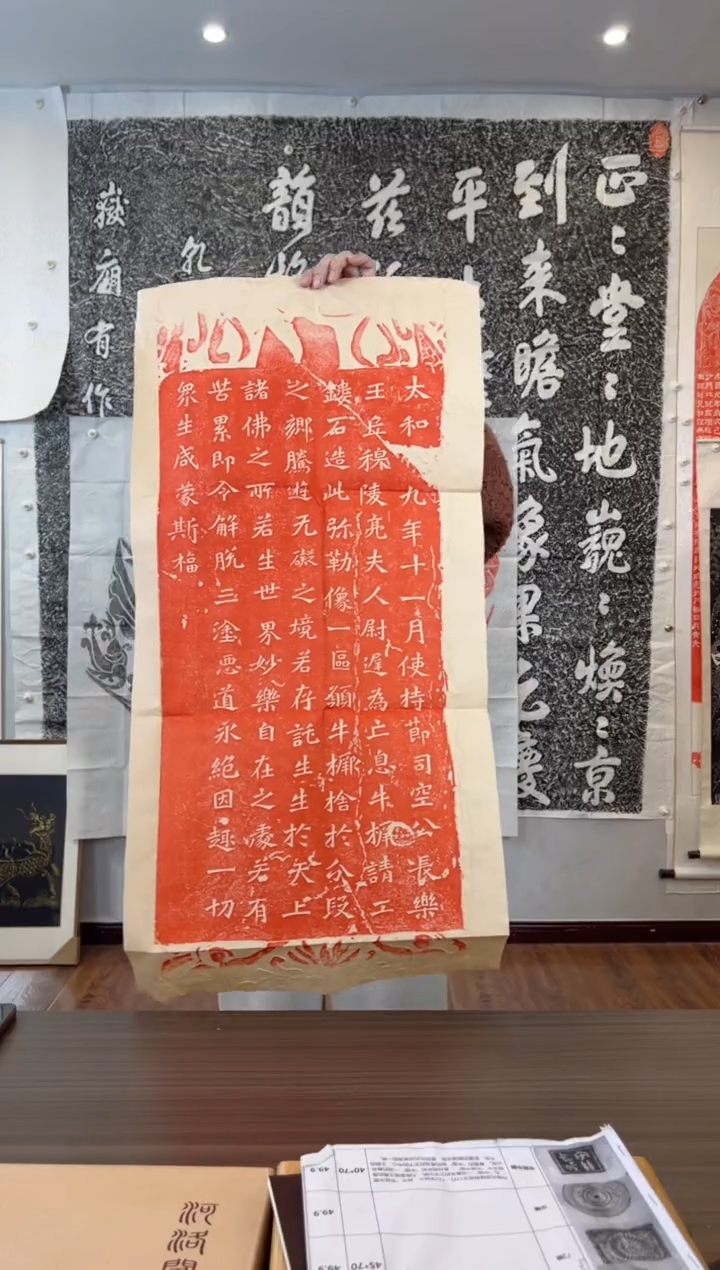 正〻堂〻地巍〻煥〻京
到來瞻氣象果
平
茲
韻
乾
嶽廟有作
太和九年十一月使持節司空公長樂
王丘穆陵亮夫人尉遲為亡息牛橛請工
鏤石造此弥勒像一區願牛橛捨於分段
之鄉騰遊无礙之境若存託生生於天上
諸佛之所若生世界妙樂自在之處若有
苦累即令解脫三塗惡道永絕因趣一切
眾生咸蒙斯福
河洛
40*70
49.9
49.9
45*70